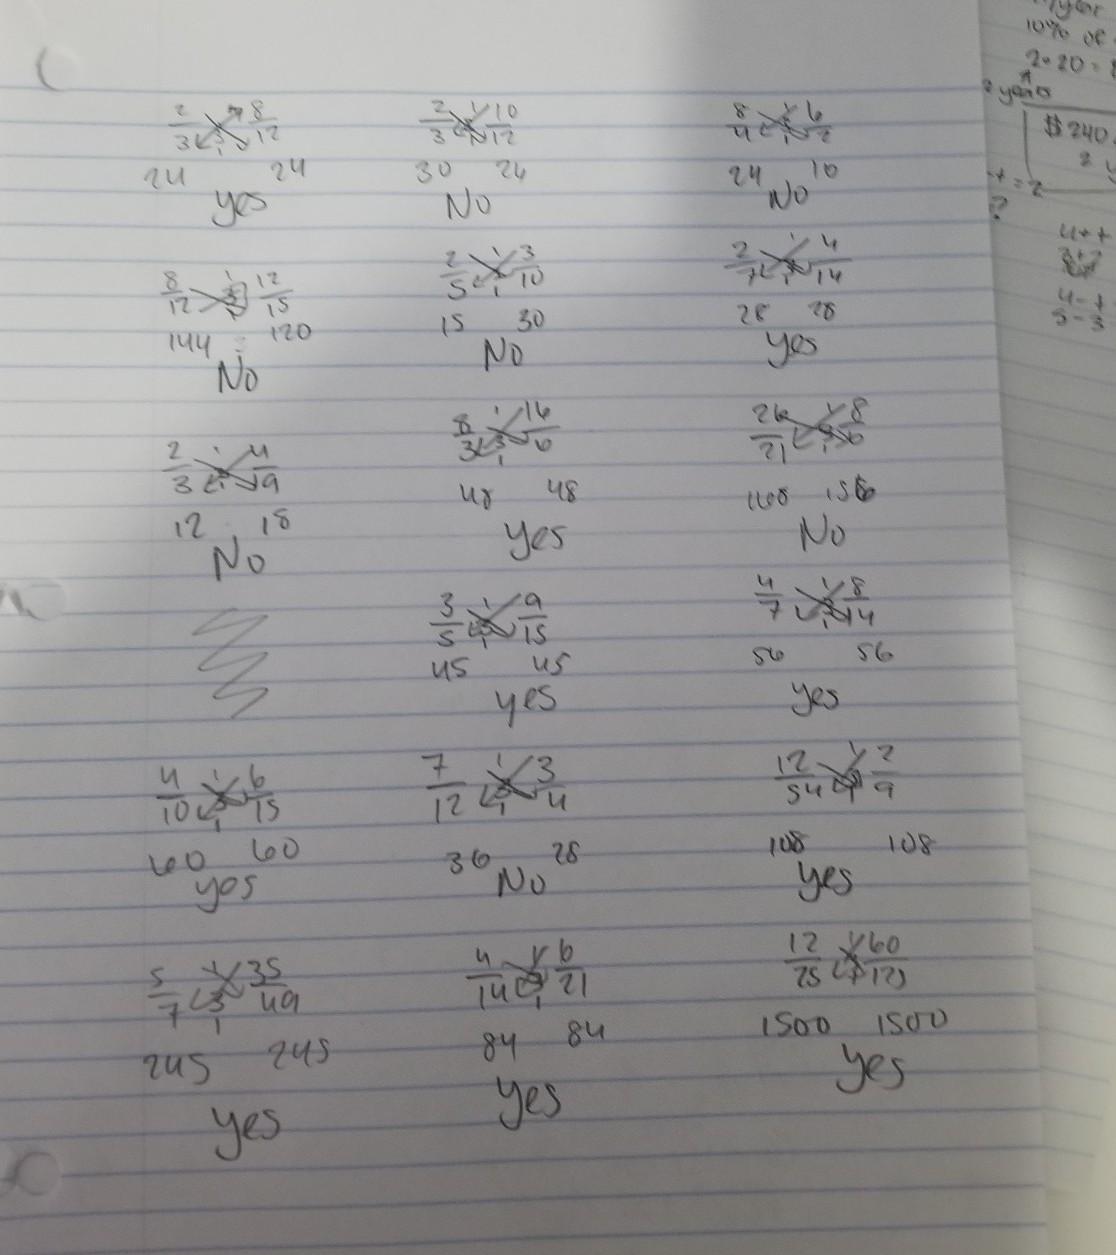 2/3 8/12
24 24
yes
2/3 10/12
30 24
No
8/4 6/2
24 10
No
8/12 12/15
144 = 120
No
2/5 3/10
15 30
No
2/7 4/14
28 28
yes
2/3 4/9
12 18
No
8/3 16/6
48 48
yes
26/21 8/6
168 156
No
3/5 9/15
45 45
yes
4/7 8/14
56 56
yes
4/10 6/15
60 60
yes
7/12 3/4
36 28
No
12/54 2/9
108 108
yes
5/7 35/49
245 245
yes
4/14 6/21
84 84
yes
12/25 60/125
1500 1500
yes
10% of
2 years
$240